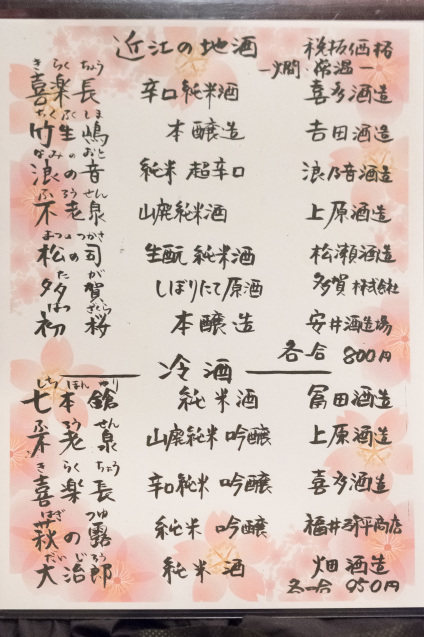 近江の地酒 税抜価格
－燗・常温－
きらくちょう
喜楽長 辛口純米酒 喜多酒造
ちくぶしま
竹生嶋 本醸造 吉田酒造
なみのおと
浪の音 純米 超辛口 浪乃音酒造
ふろうせん
不老泉 山廃純米酒 上原酒造
まつのつかさ
松の司 生酛 純米酒 松瀬酒造
たが
多賀 しぼりたて原酒 多賀 株式会社
はつざくら
初桜 本醸造 安井酒造場
各一合 800円
冷酒
しちほんやり
七本鎗 純米酒 冨田酒造
ふろうせん
不老泉 山廃純米 吟醸 上原酒造
きらくちょう
喜楽長 辛口純米 吟醸 喜多酒造
はぎつゆ
萩の露 純米 吟醸 福井弥平商店
だいじろう
大治郎 純米酒 畑酒造
各一合 950円